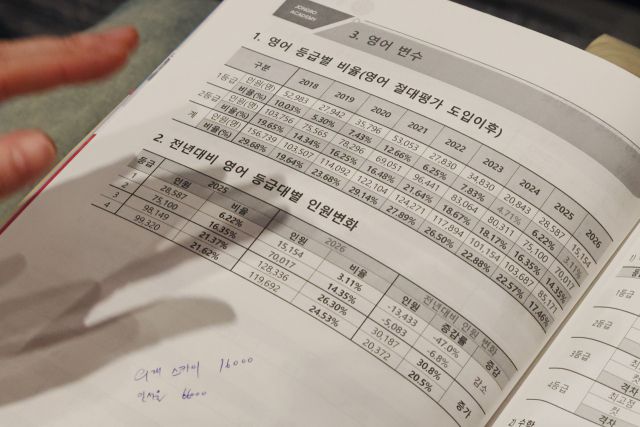 JONGRO
ACADEMY
3. 영어 변수
1. 영어 등급별 비율(영어 절대평가 도입이후)
구분 2018 2019 2020 2021 2022 2023 2024 2025 2026
1등급 인원(명) 52,983 27,942 35,796 53,053 27,830 34,830 20,843 28,587 15,154
비율(%) 10.03% 5.30% 7.43% 12.66% 6.25% 7.83% 4.71% 6.22% 3.11%
2등급 인원(명) 103,756 75,565 78,296 69,051 96,441 83,064 80,311 75,100 70,017
비율(%) 19.65% 14.34% 16.25% 16.48% 21.64% 18.67% 18.17% 16.35% 14.35%
계 인원(명) 156,739 103,507 114,092 122,104 124,271 117,894 101,154 103,687 85,171
비율(%) 29.68% 19.64% 23.68% 29.14% 27.89% 26.50% 22.88% 22.57% 17.46%
2. 전년대비 영어 등급대별 인원변화
등급 2025 2026 전년대비 인원 변화
인원 비율 인원 비율 인원 증감률 증감
1 28,587 6.22% 15,154 3.11% -13,433 -47.0% 감소
2 75,100 16.35% 70,017 14.35% -5,083 -6.8%
3 98,149 21.37% 128,336 26.30% 30,187 30.8% 증가
4 99,320 21.62% 119,692 24.53% 20,372 20.5%
스카이 16000
1등급
2등급
3등급
4등급
격차
최고점
격차
2) 수학